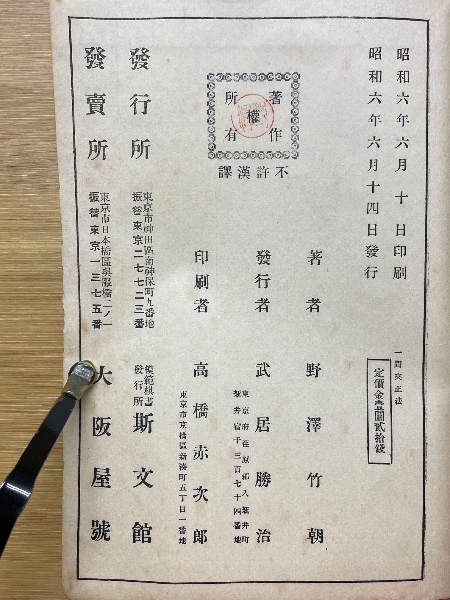 昭和六年六月十日印刷
昭和六年六月十四日發行
一間夾正法
定價金壹圓貳拾錢
著作權所有
不許漢譯
著者 野澤竹朝
發行者 武居勝治
東京府荏原郡入新井町
新井宿千三百七十四番地
印刷者 高橋赤次郎
東京市京橋區新湊町五丁目一番地
發行所
東京市神田區南神保町九番地
振替東京二七七二三番
模範棋書發行所 斯文館
發賣所
東京市日本橋區吳服橋二ノ一
振替東京一三七五番
大阪屋號